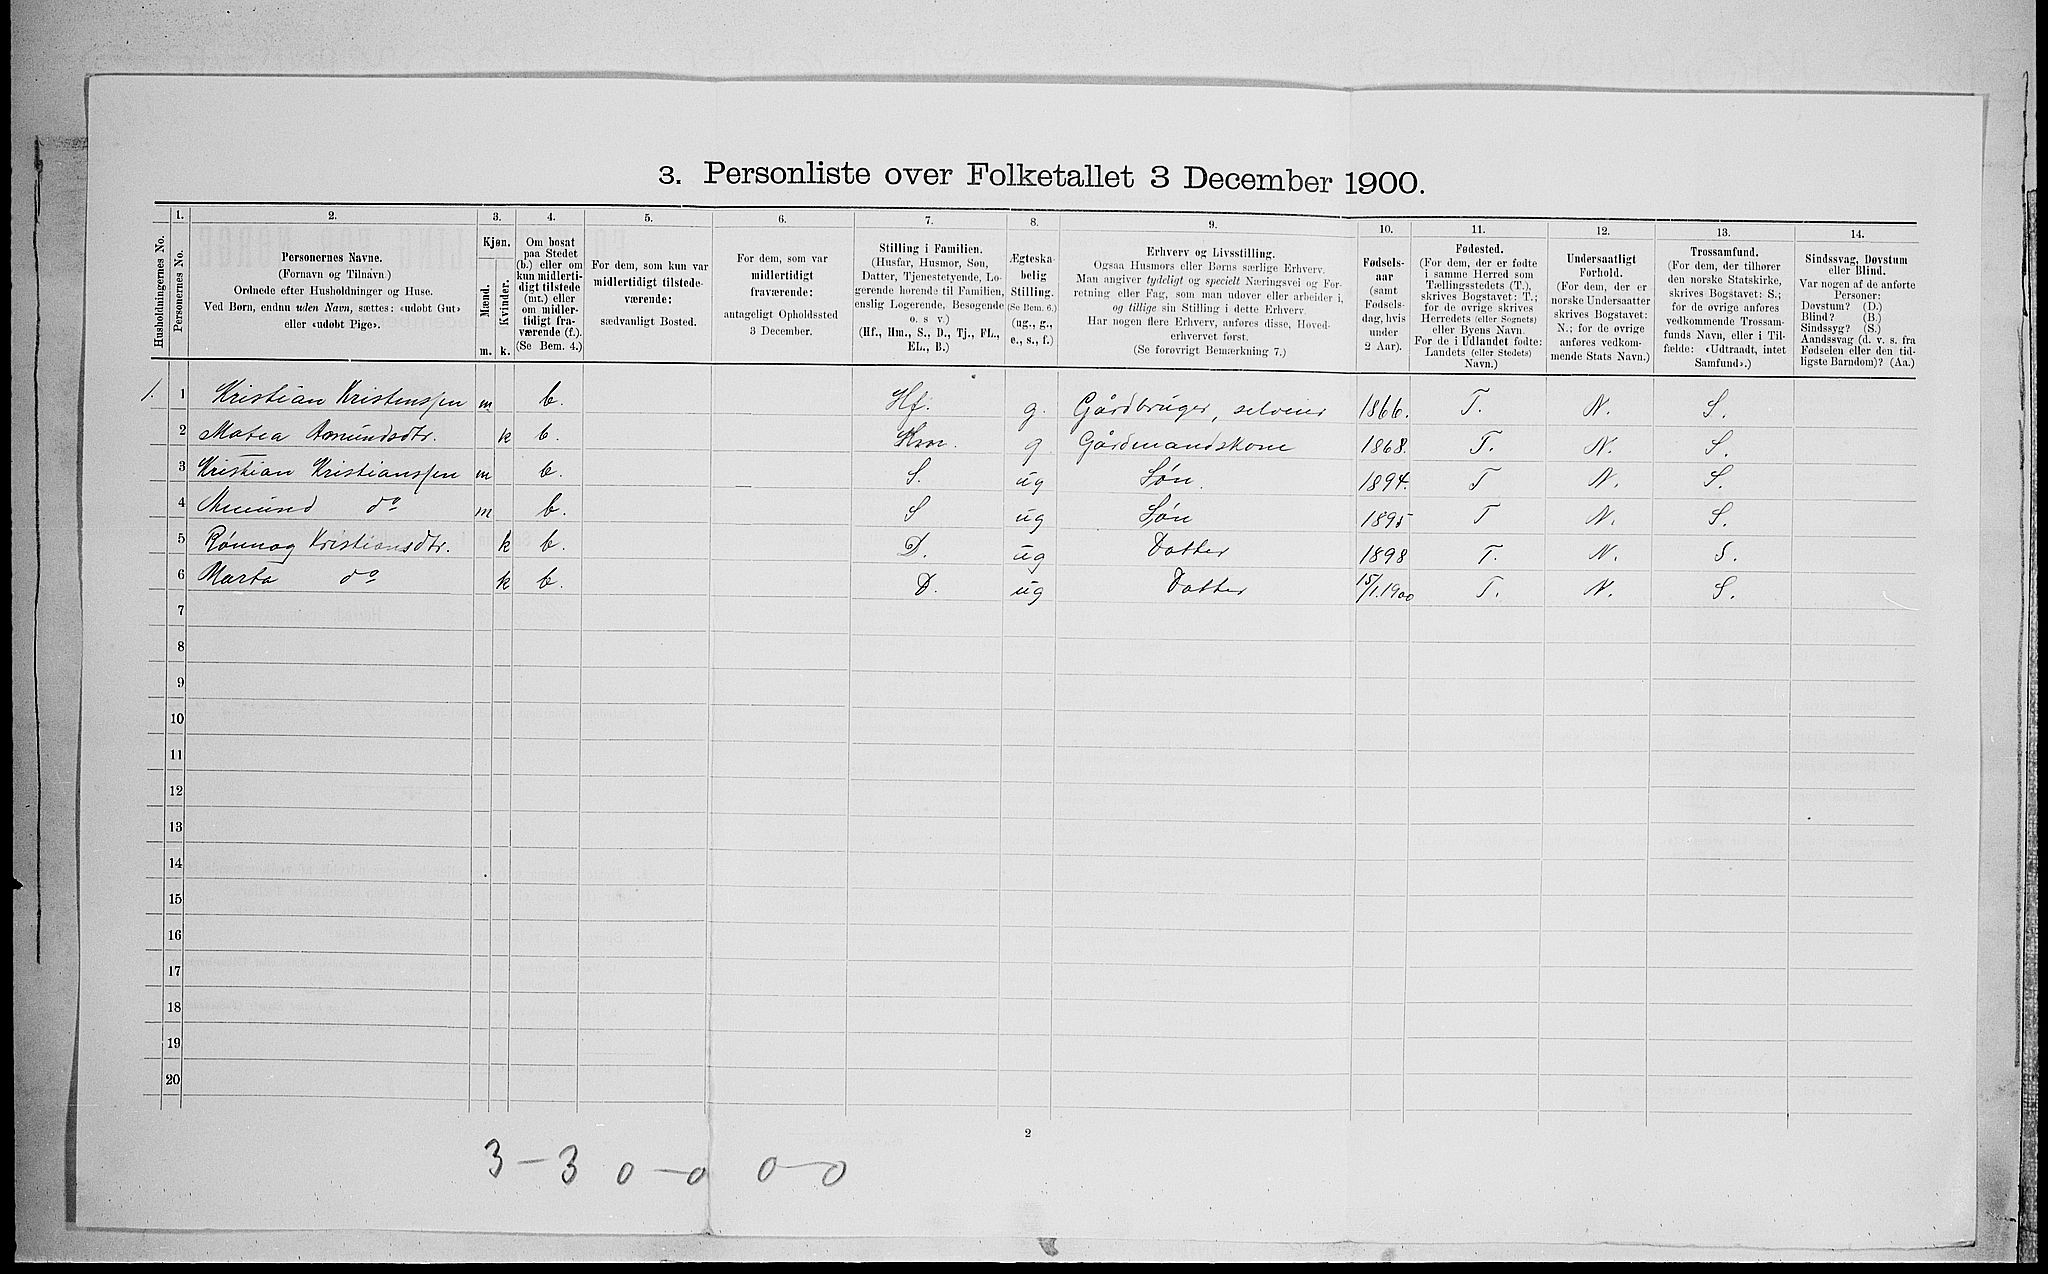 3. Personliste over Folketallet 3 December 1900.
1. 2. 3. 4. 5. 6. 7. 8. 9. 10. 11. 12. 13. 14.
Husholdningernes No.
Personernes No.
Personernes Navne.
(Fornavn og Tilnavn.)
Ordnede efter Husholdninger og Huse.
Ved Børn, endnu uden Navn, sættes: «udøbt Gut»
eller «udøbt Pige».
Kjøn.
Mænd.
Kvinder.
m. k.
Om bosat
paa Stedet
(b.) eller om
kun midlerti-
digt tilstede
(mt.) eller
om midler-
tidigt fra-
værende (f.).
(Se Bem. 4.)
For dem, som kun var
midlertidigt tilstede-
værende:
sædvanligt Bosted.
For dem, som var
midlertidigt
fraværende:
antageligt Opholdssted
3 December.
Stilling i Familien.
(Husfar, Husmor, Søn,
Datter, Tjenestetyende, Lo-
gerende hørende til Familien,
enslig Logerende, Besøgende
o. s v.)
(Hf., Hm., S., D., Tj., FL.,
EL., B.)
Ægteska-
belig
Stilling.
(Se Bem. 6.)
(ug., g.,
e., s., f.)
Erhverv og Livsstilling.
Ogsaa Husmors eller Børns særlige Erhverv.
Man angiver tydeligt og specielt Næringsvei og For-
retning eller Fag, som man udøver eller arbeider i,
og tillige sin Stilling i dette Erhverv.
Har nogen flere Erhverv, anføres disse, Hoved-
erhvervet først.
(Se forøvrigt Bemærkning 7.)
Fødsels-
aar
(samt
Fødsels-
dag, hvis
under
2 Aar).
Fødested.
(For dem, der er fødte
i samme Herred som
Tællingsstedets (T.),
skrives Bogstavet: T.;
for de øvrige skrives
Herredets (eller Sognets)
eller Byens Navn.
For de i Udlandet fødte:
Landets (eller Stedets)
Navn.)
Undersaatligt
Forhold.
(For dem, der er
norske Undersaatter
skrives Bogstavet:
N.; for de øvrige
anføres vedkom-
mende Stats Navn.)
Trossamfund.
(For dem, der tilhører
den norske Statskirke,
skrives Bogstavet: S.;
for de øvrige anføres
vedkommende Trossam-
funds Navn, eller i Til-
fælde: «Udtraadt, intet
Samfund».)
Sindssvag, Døvstum
eller Blind.
Var nogen af de anførte
Personer:
Døvstum? (D.)
Blind? (B.)
Sindssyg? (S.)
Aandssvag (d. v. s. fra
Fødselen eller den tid-
ligste Barndom)? (Aa.)
1. 1 Kristian Kristenssen m b. Hf. g. Gårdbruger, selveier 1866. T. N. S.
2 Matea Amundsdtr. k b. Hm. g Gårdmandskone 1868. T. N. S.
3 Kristian Kristianssen m b. S. ug Søn. 1894. T N. S.
4 Amund do m b. S ug Søn 1895 T N. S.
5 Rønnog Kristiansdtr. k b. D. ug Datter 1898 T. N. S.
6 Marta do k b. D. ug Datter 15/1.1900 T. N. S.
7
8
9
10
11
12
13
14
15
16
17
18
19
20
2
3 – 3 0 – 0 0 – 0